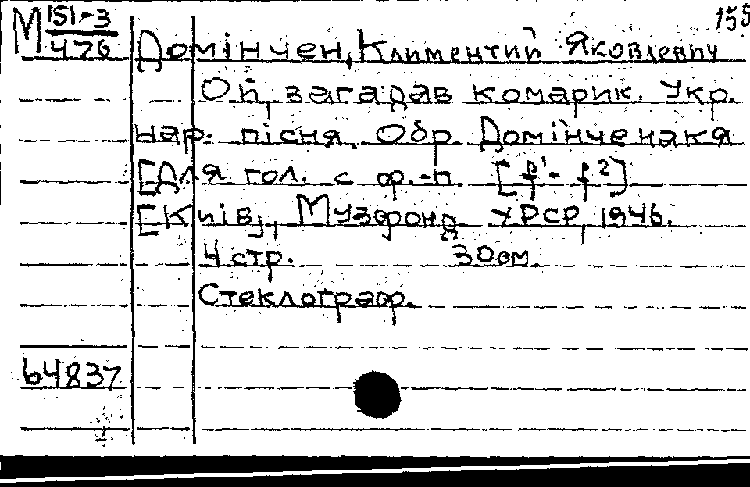 М 151-3/476
155
Домінчен, Климентий Яковлевич
Ой, загадав комарик. Укр.
нар. пісня. Обр. Домінчена К Я
[Для гол. с ф.-п. [f¹ - f²]
[Київ], Музфонд УРСР, 1946.
4 стр. 30 см.
Стеклограф.
64837